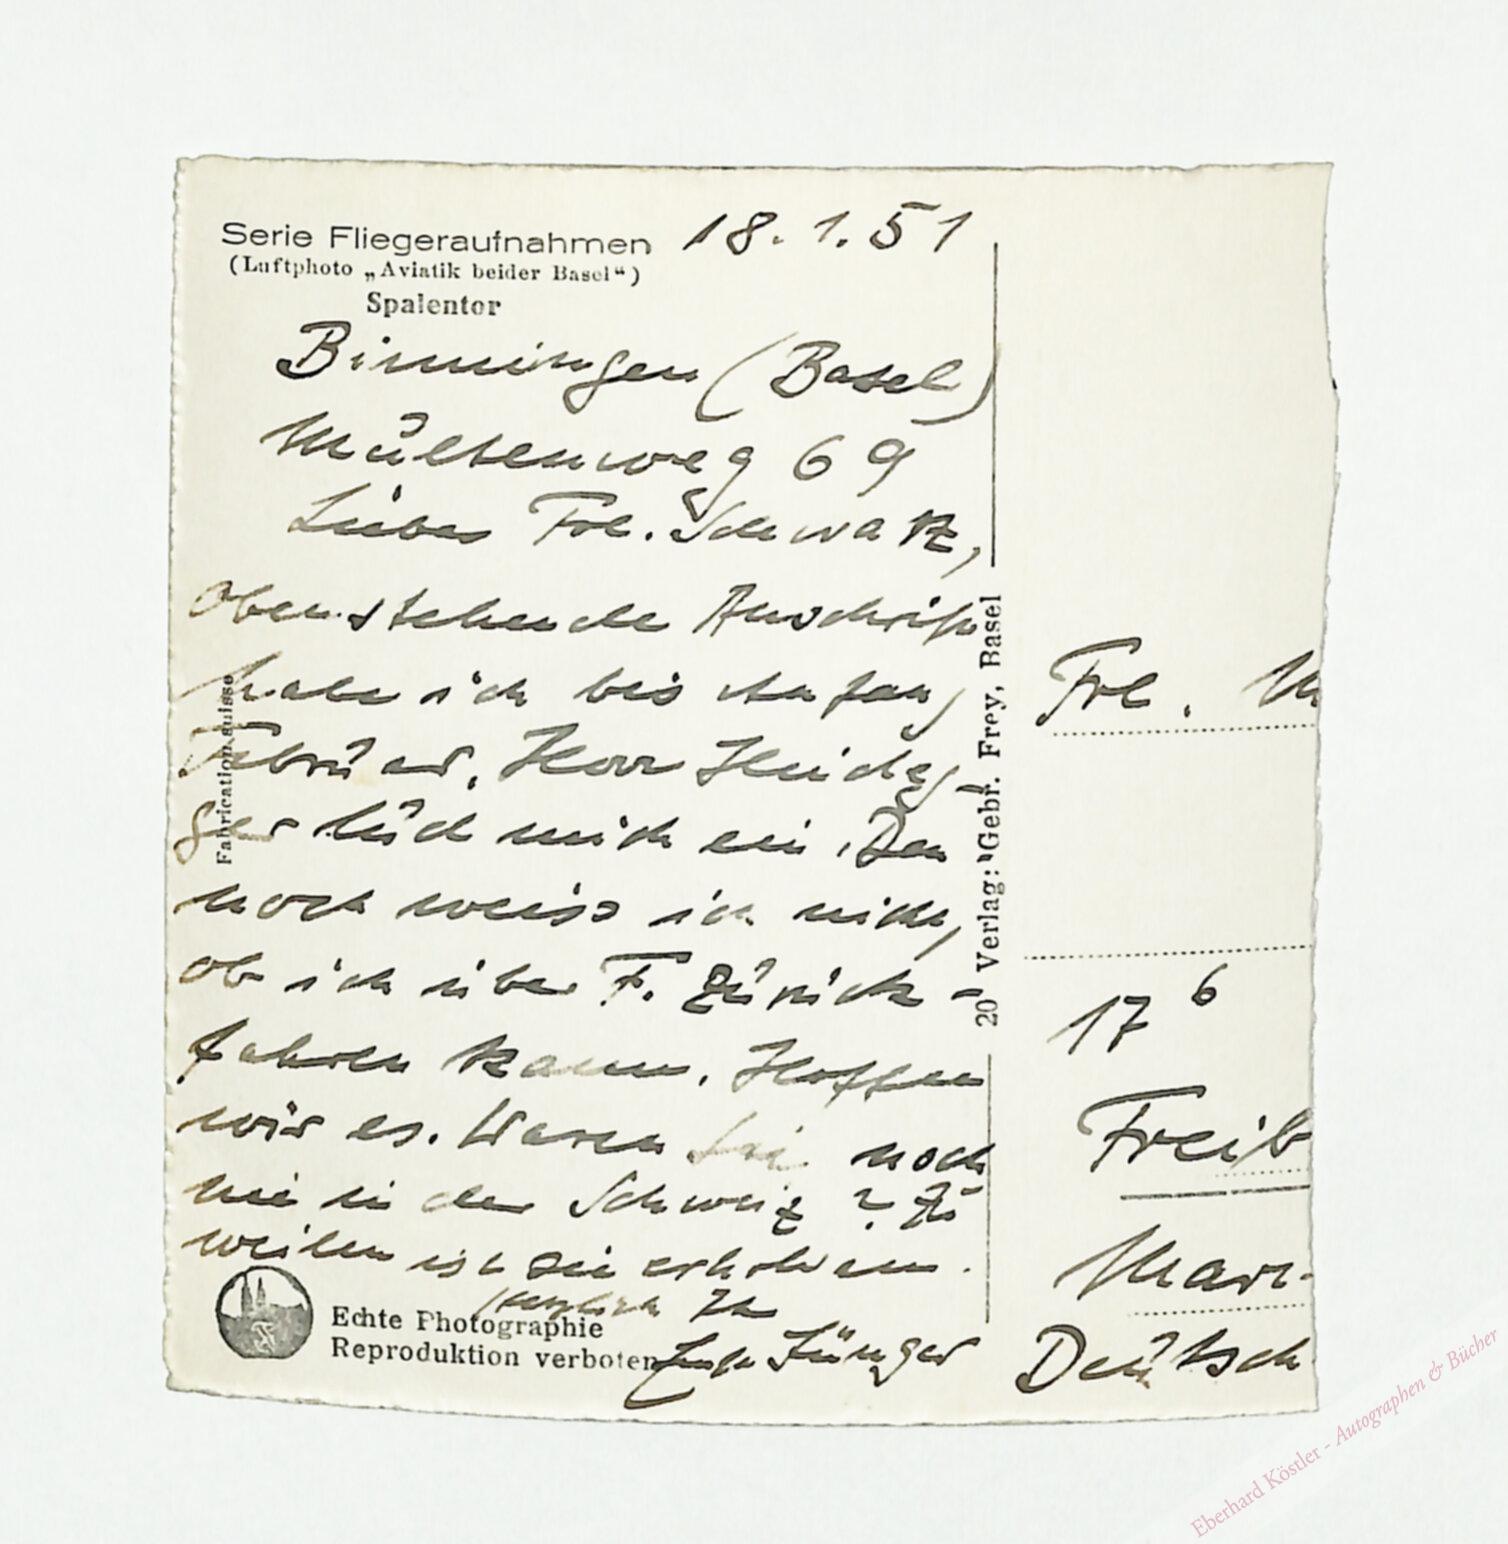 Serie Fliegeraufnahmen
18.1.51
(Luftphoto „Aviatik beider Basel“)
Spalentor
Binningen (Basel)
weg 69
Liebes Frl. Schwarz,
obenstehende Anschrift
habe ich bis Anfang
Februar. Herr Heideg-
ger lud mich ein. Den
noch weiss ich nicht,
ob ich über F. zurück-
fahren kann. Hoffen
wir es. Waren Sie noch
nie in der Schweiz? Zu
weilen ist sie erholsam.
Herzlich Ihr
Ernst Jünger
Fabrication suisse
Echte Photographie
Reproduktion verboten
20 Verlag: Gebr. Frey, Basel
Frl. M
17 6
Freib
Mar
Deutsch
Eberhard Köstler - Autographen & Bücher